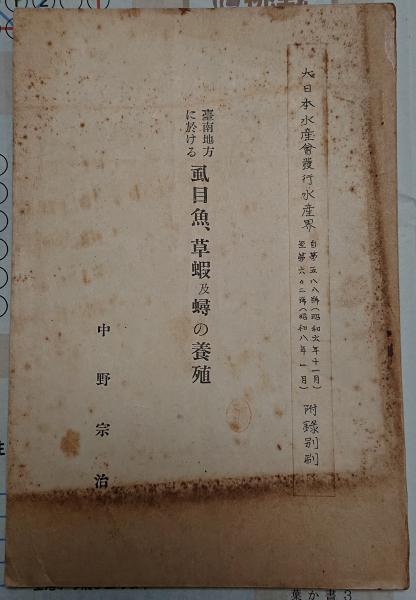 大日本水産會發行水産界
自第五八八號(昭和六年十一月)
至第六〇二號(昭和八年一月)
附錄別刷
臺南地方
に於ける
虱目魚、草蝦及蟳の養殖
中野宗治